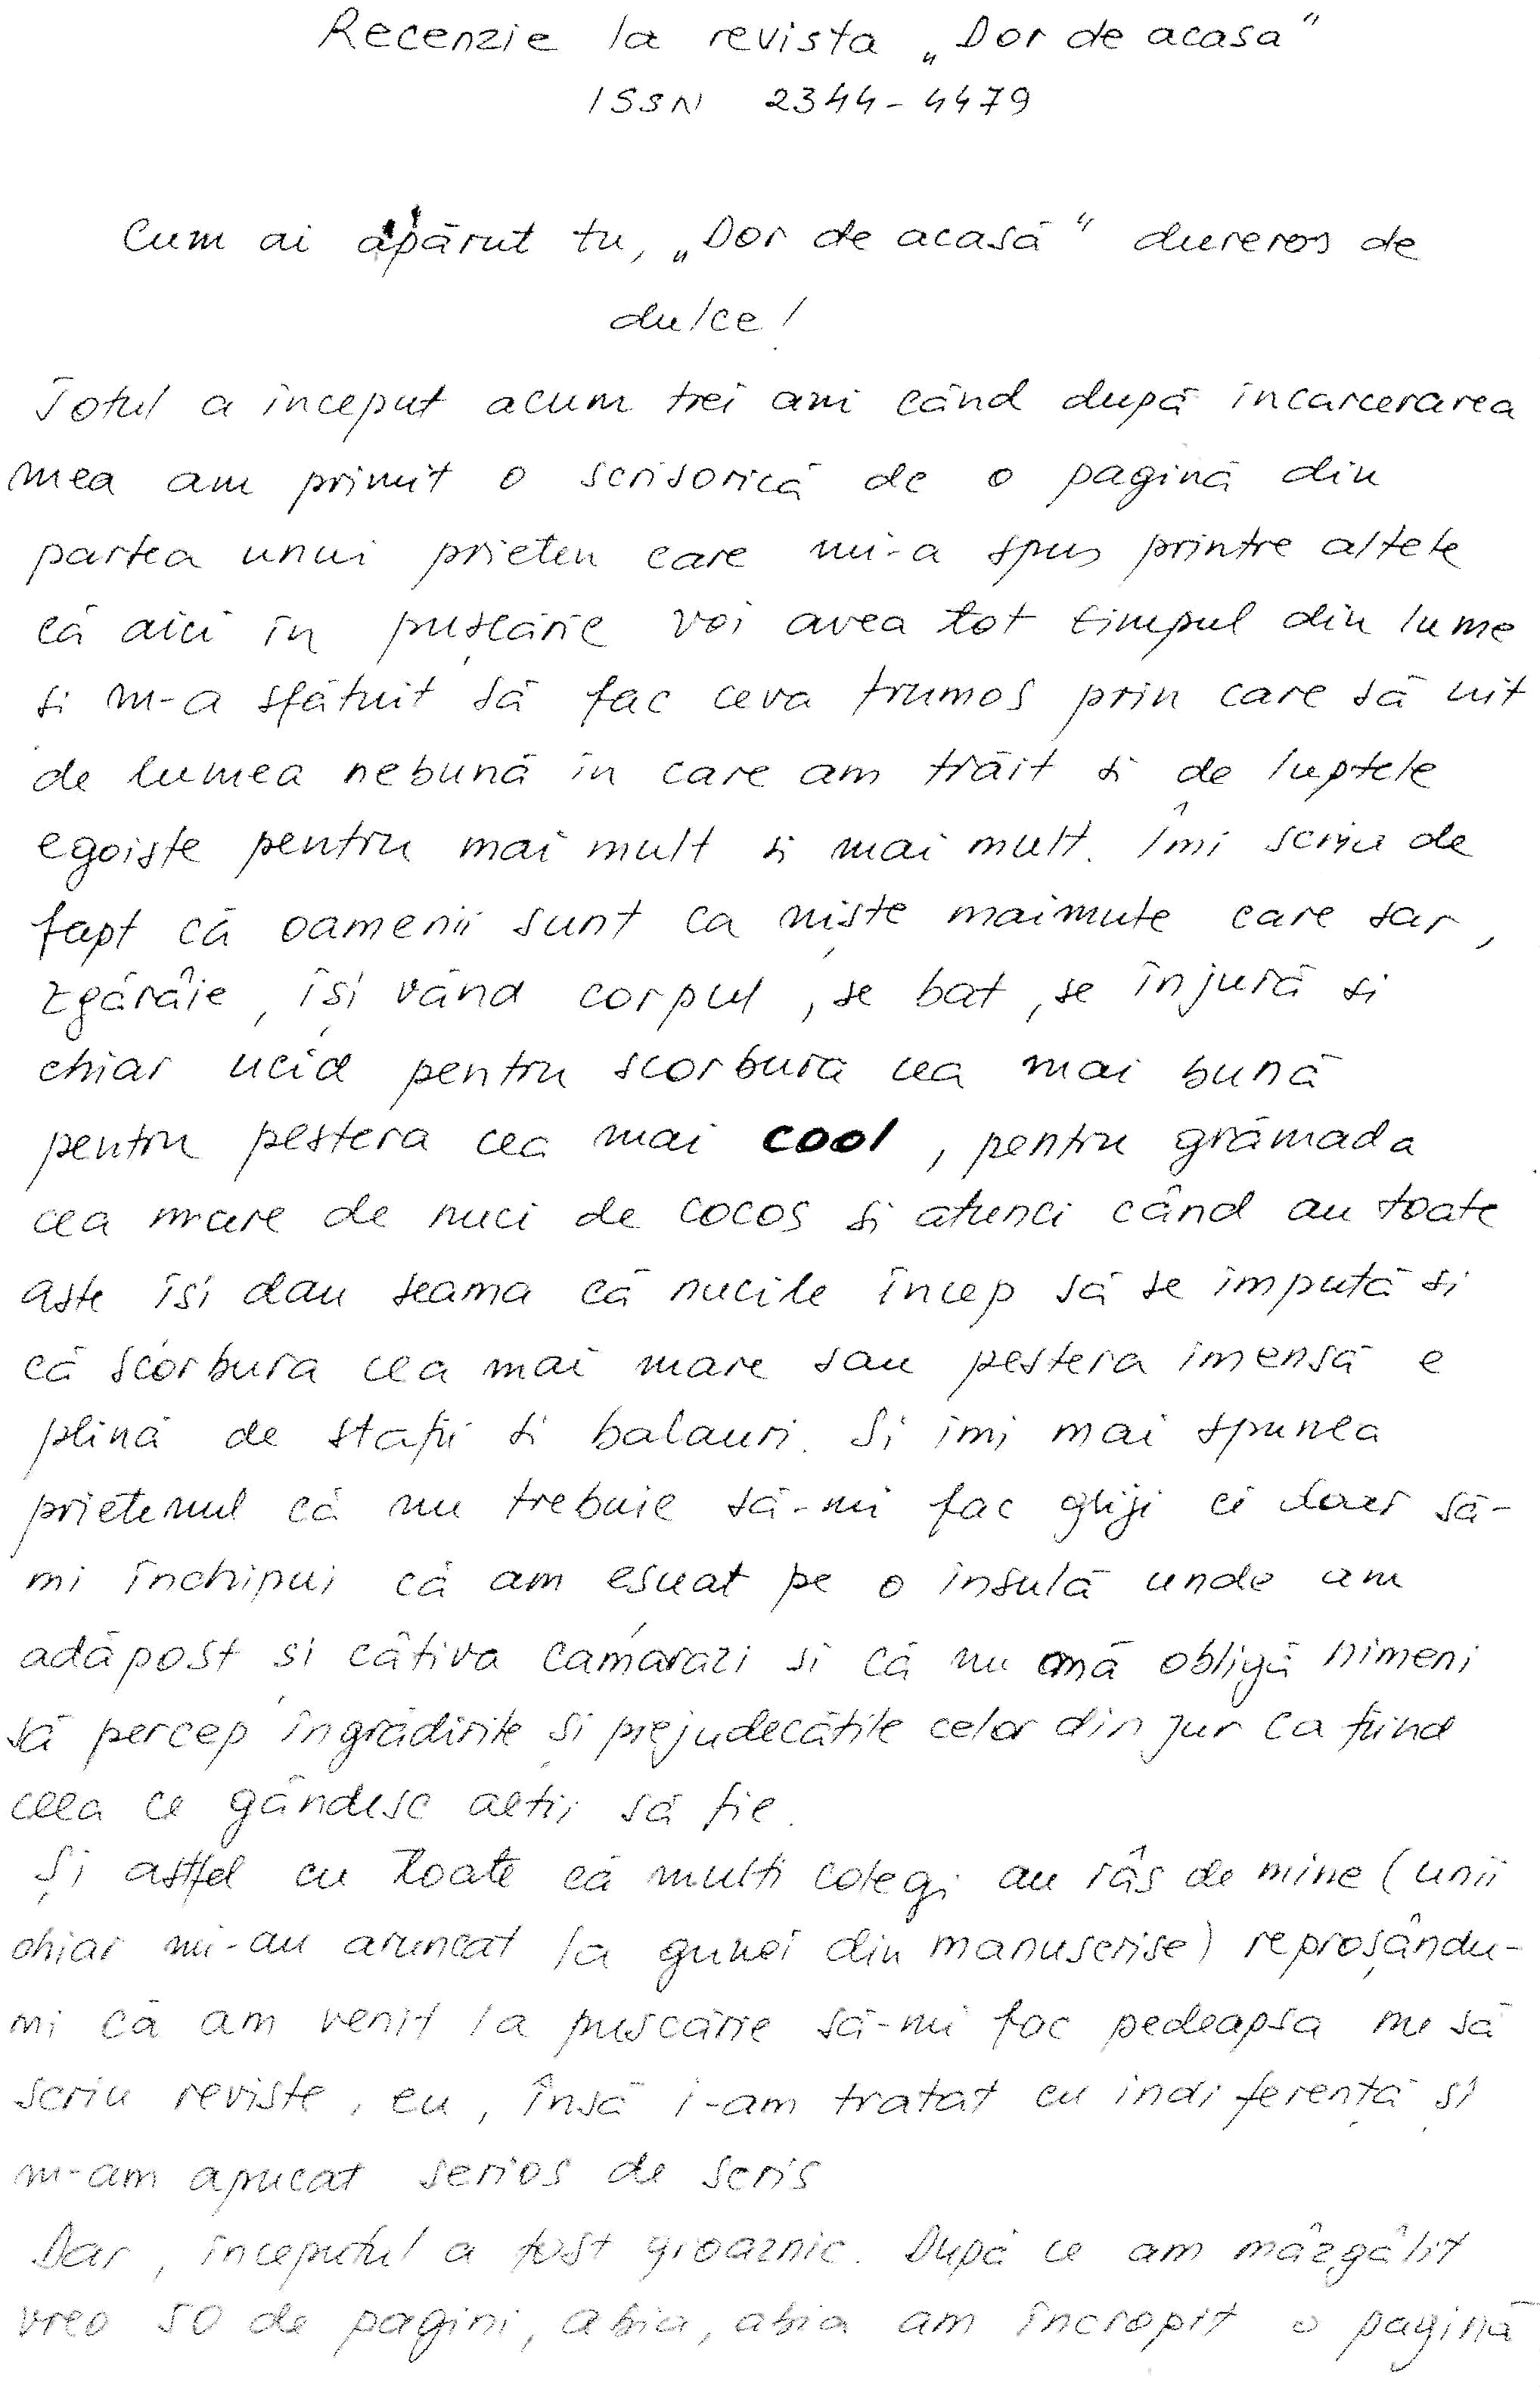 Recenzie la revista „Dor de acasa"
ISSN 2344-4479
Cum ai apărut tu, „Dor de acasă" dureros de
dulce!
Totul a inceput acum trei ani când după incarcerarea
mea am primit o scrisorică de o pagină din
partea unui prieten care mi-a spus printre altele
că aici în pușcărie voi avea tot timpul din lume
si m-a sfătuit să fac ceva frumos prin care să uit
de lumea nebună in care am trăit si de luptele
egoiste pentru mai mult si mai mult. Îmi scria de
fapt că oamenii sunt ca niște maimute care sar,
zgârâie, își vând corpul, se bat, se înjură si
chiar ucid pentru scorbura cea mai bună
pentru pestera cea mai cool, pentru grămada
cea mare de nuci de cocos si atunci când au toate
aste îsi dau seama că nucile încep să se împută si
că scorbura cea mai mare sau pestera imensă e
plină de stafii si balauri. Si imi mai spunea
prietenul că nu trebuie să-mi fac griji ci doar să-
mi închipui că am esuat pe o insulă unde am
adăpost si câtiva camarazi si că nu mă obligă nimeni
să percep îngrădirile și prejudecătile celor din jur ca fiind
ceea ce gândesc altii să fie.
Și astfel cu toate că multi colegi au râs de mine (unii
chiar mi-au aruncat la gunoi din manuscrise) reproșându-
mi că am venit la puscărie să-mi fac pedeapsa nu să
scriu reviste, eu, însă i-am tratat cu indiferență și
m-am apucat serios de scris
Dar, începutul a fost groaznic. După ce am mâzgâlit
vreo 50 de pagini, abia, abia am încropit o pagină